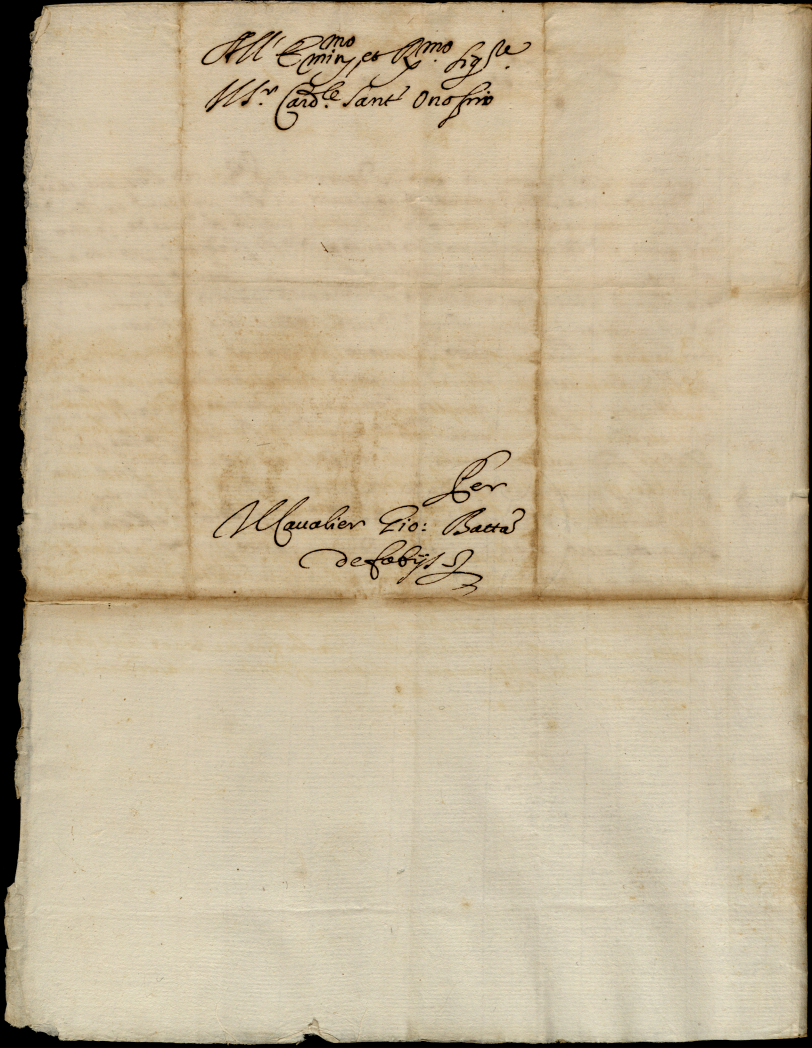 All' Emin.mo et R.mo Sig.re
Il Sr. Card.le Sant' Onofrio
Per
Il Caualier Gio: Batta
de fabijs